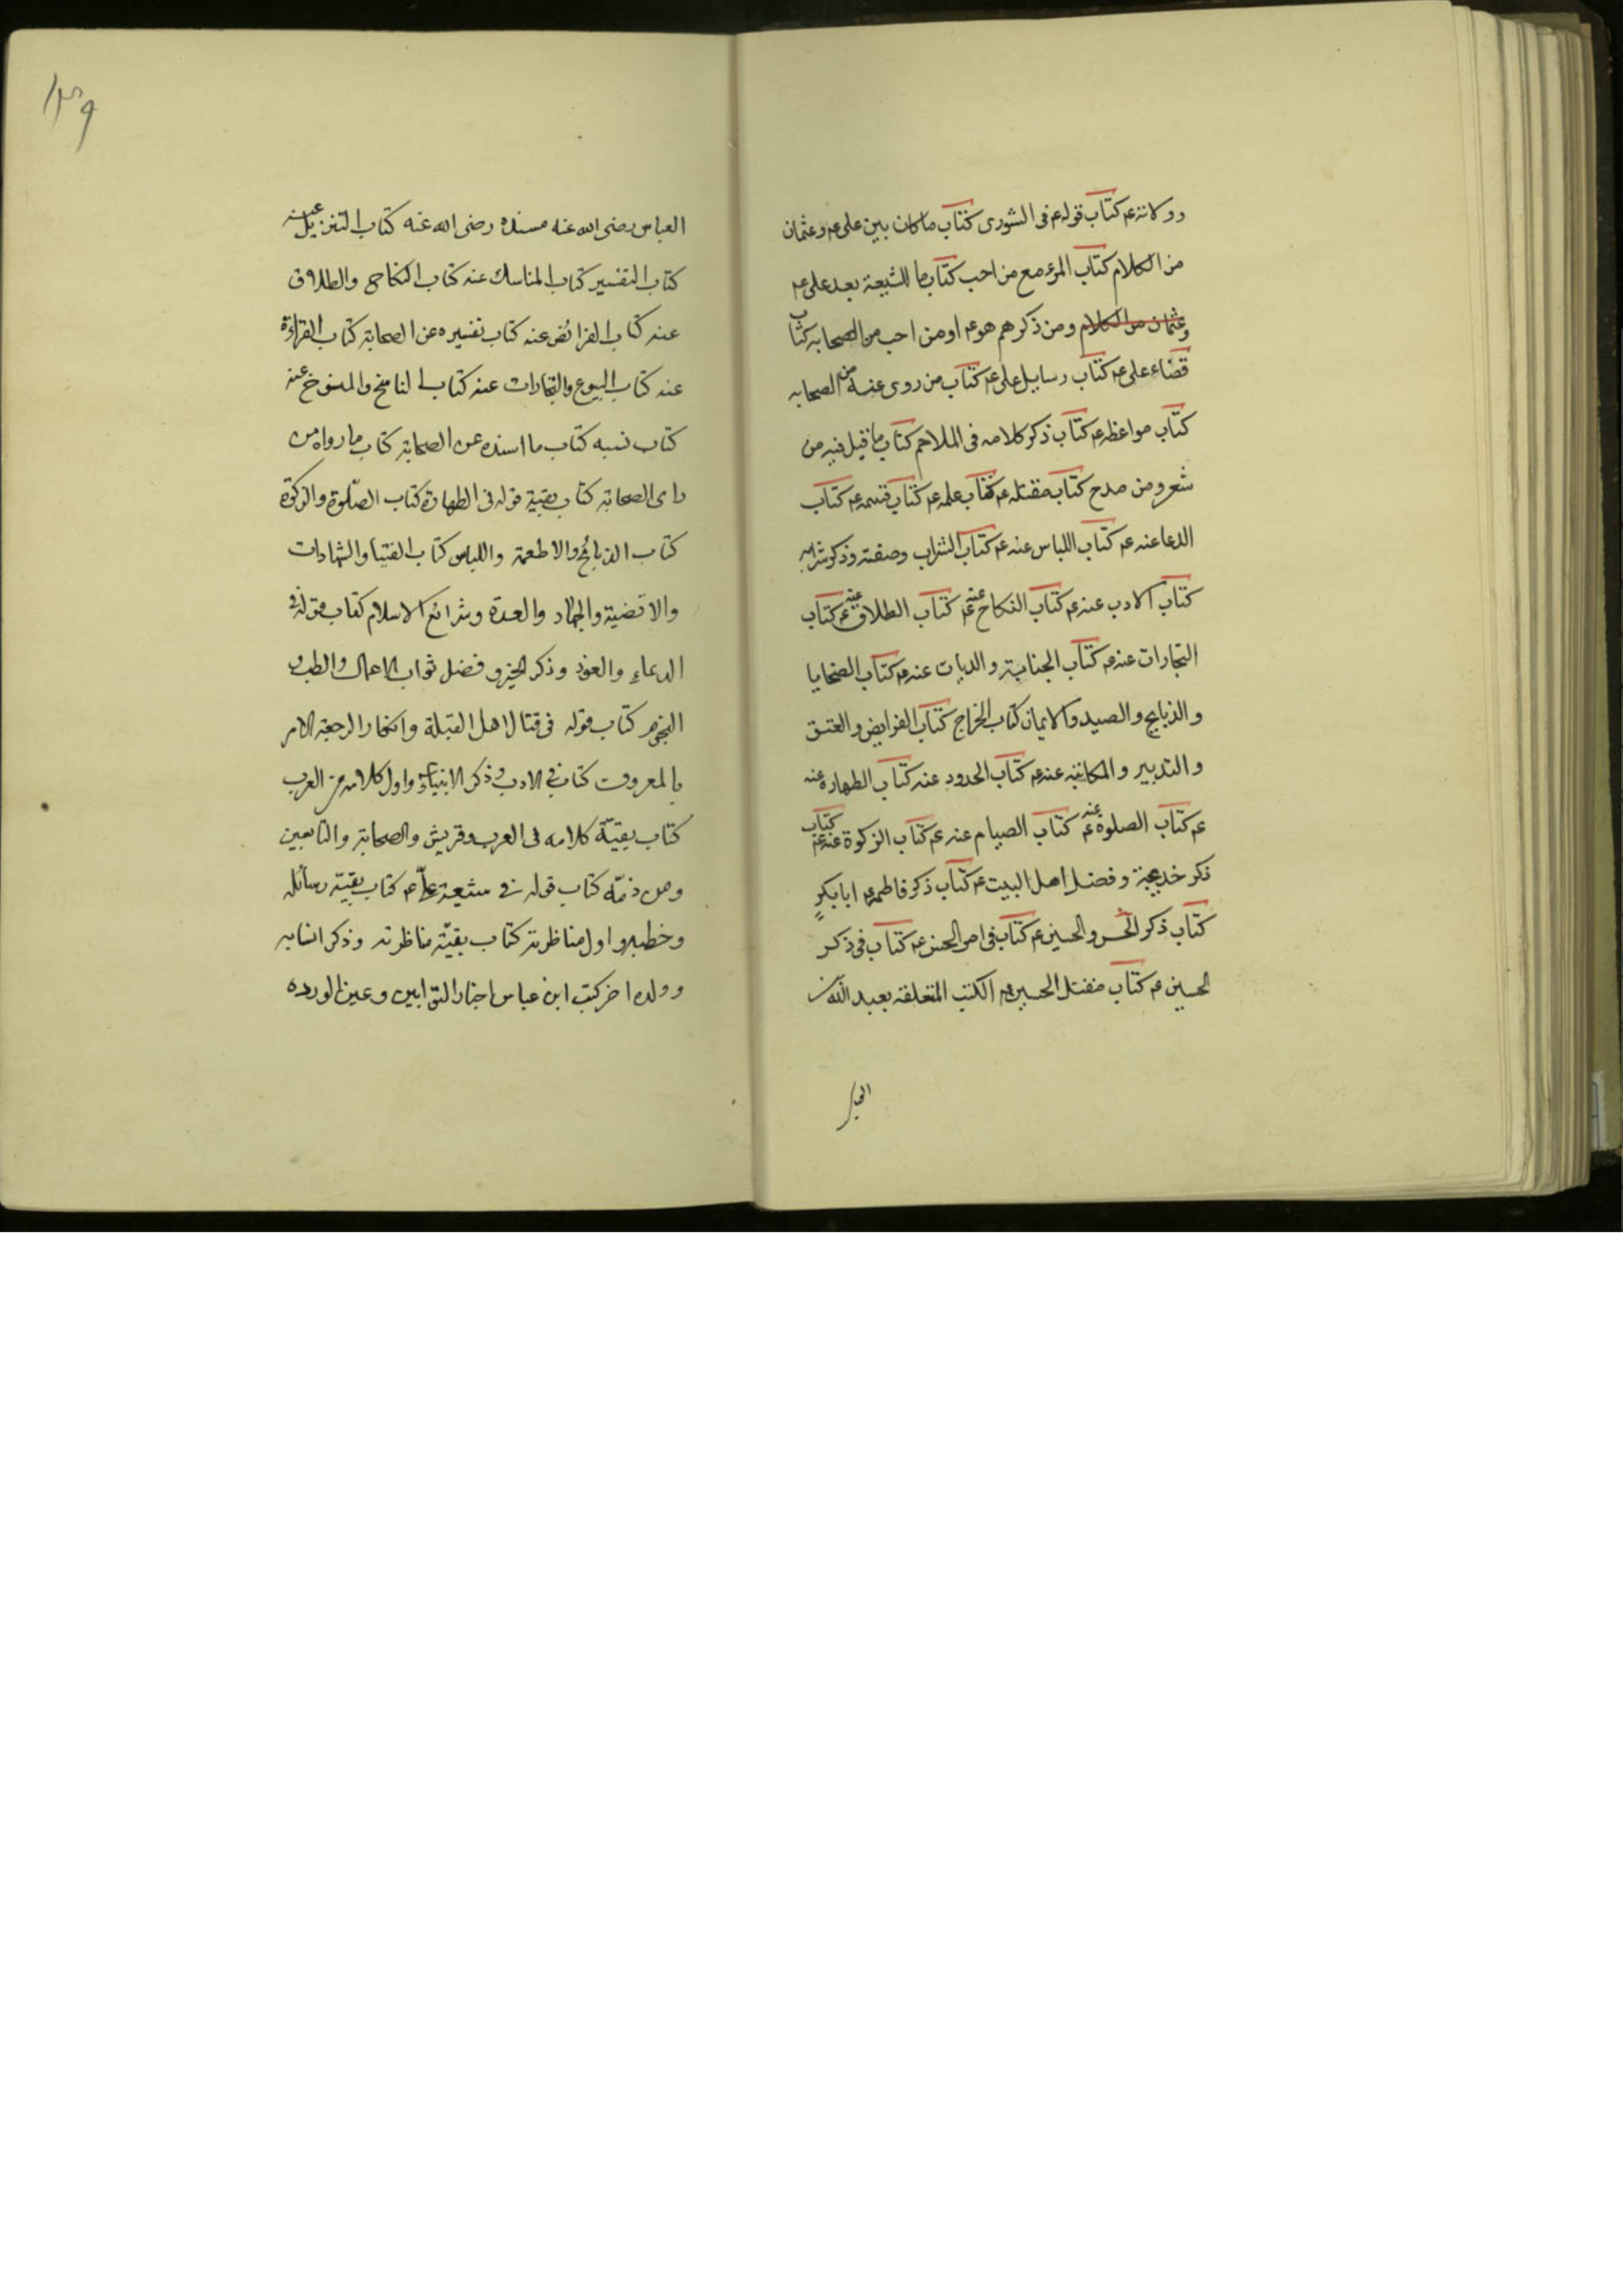 ووكانته عم كتاب قوله عم فى الشورى كتاب ماكان بين على عم وعثمان
من الكلام كتاب المرء مع من احب كتاب ما للشيعة بعد على عم
وعثمان من الكلام ومن ذكرهم هو عم اومن احب من الصحابه كتاب
قضاء على عم كتاب رسايل على عم كتاب من روى عنه من الصحابه
كتاب مواعظه عم كتاب ذكر كلامه فى الملاحم كتاب ما قيل فيه من
شعر ومن مدح كتاب مقتله عم كتاب علمه عم كتاب قسمه عم كتاب
الدعا عنه عم كتاب اللباس عنه عم كتاب الشراب وصفته وذكر شرابه
كتاب الادب عنه عم كتاب النكاح عنه عم كتاب الطلاق عنه عم كتاب
التجارات عنه عم كتاب الجناية والديات عنه عم كتاب الضحايا
والذبايح والصيد والايمان كتاب الخراج كتاب الفرايض والعتق
والتدبير والمكاتبه عنه عم كتاب الحدود عنه كتاب الطهاره عنه
عم كتاب الصلوة عنه عم كتاب الصيام عنه عم كتاب الزكوة عنه عم كتاب
ذكر خديجة وفضل اهل البيت عم كتاب ذكر فاطمه عم ابا بكر
كتاب ذكر الحسن والحسين عم كتاب فى امر الحسن عم كتاب فى ذكر
الحسين عم كتاب مقتل الحسين عم الكتب المتعلقه بعبد الله بن
العباس رضى الله عنه مسنده رضى الله عنه كتاب التنزيل عنه
كتاب التفسير كتاب المناسك عنه كتاب النكاح والطلاق
عنه كتاب الفرائض عنه كتاب تفسيره عن الصحابة كتاب القراءة
عنه كتاب البيوع والتجارات عنه كتاب الناسخ والمنسوخ عنه
كتاب نسبه كتاب ما اسنده عن الصحابة كتاب ما رواه من
راى الصحابة كتاب بقية قوله فى الطهارة كتاب الصّلوة والزكوة
كتاب الذبائح والاطعمة واللباس كتاب الفتيا والشهادات
والاقضية والجهاد والعدة وشرائع الاسلام كتاب قوله فى
الدعاء والعوذ وذكر الخير وفضل ثواب الاعمال والطب و
النجوم كتاب قوله فى قتال اهل القبلة وانكار الرجعة والامر
بالمعروف كتاب فى الادب وذكر الانبياء واول كلامه فى العرب
كتاب بقيّة كلامه فى العرب وقريش والصحابة والتابعين
ومن ذمّه كتاب قوله فى شيعة علّى عم كتاب بقيّة رسائله
وخطبه واول مناظرته كتاب بقيّة مناظرته وذكر نسابه
وولده اخر كتب ابن عباس اخبار التوابين وعين الورده